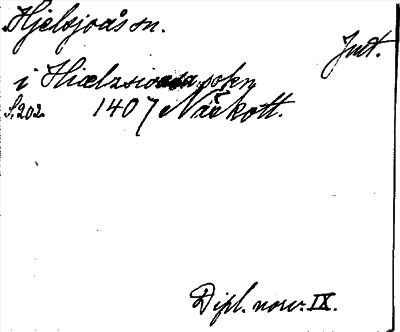 Hjelsjoås sn.
Jmt.
i Hiælzsioasa sokn
S. 202. 1407 Närkott.
Dipl. norv. IX.